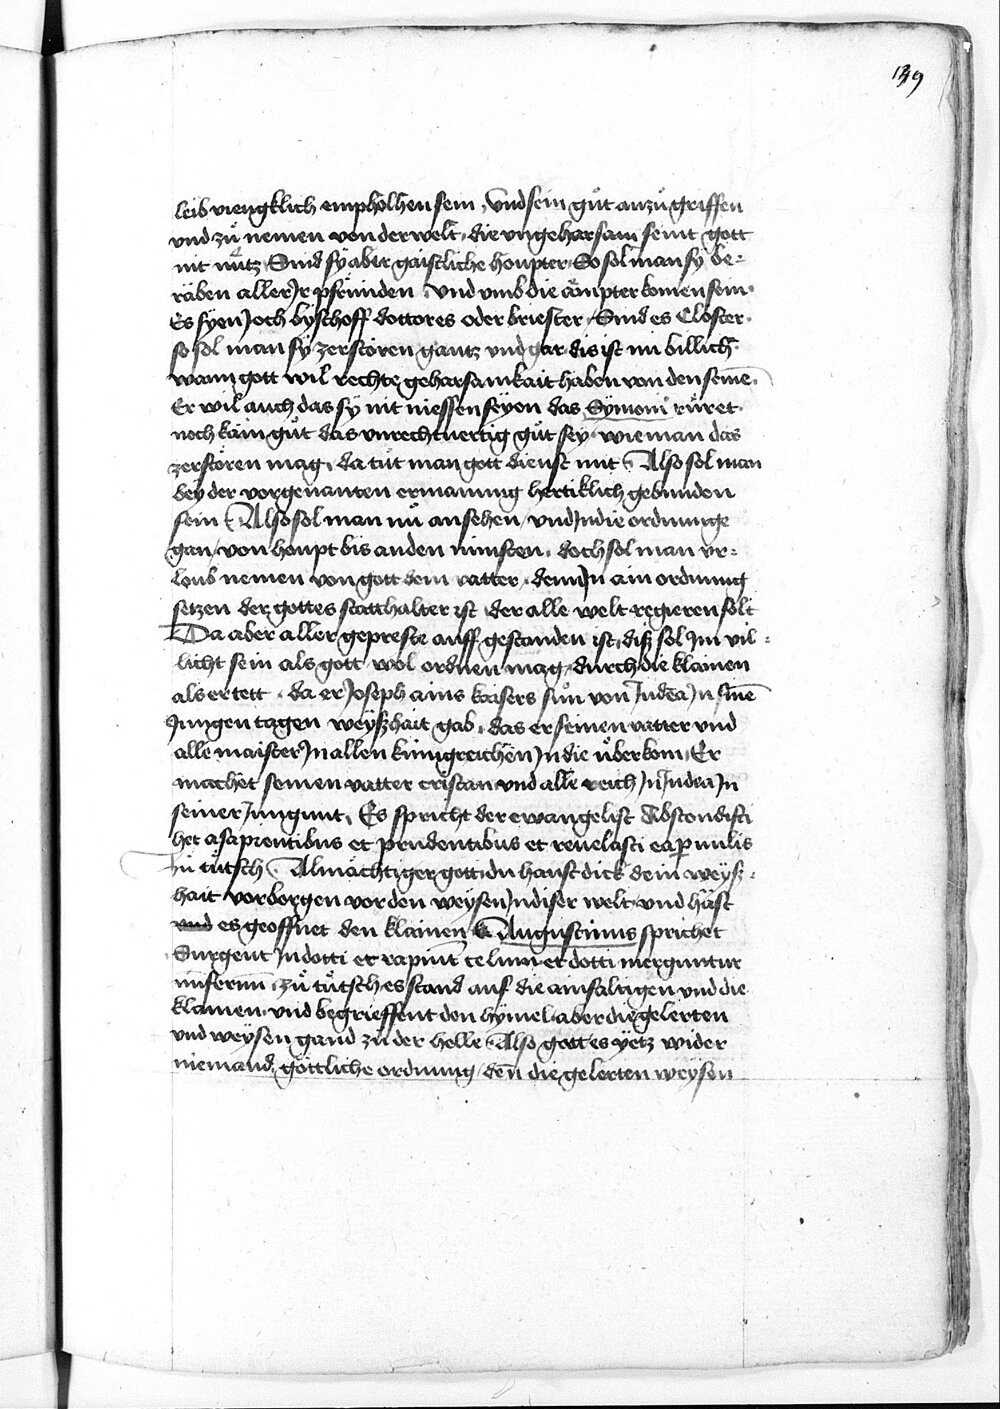 139
leib viengklich empholhen sein, Und sein gůt anzůgriffen
und zů nemen von der welt, die ungeharsam seint gott
nit nütz, Sind sÿ aber gaistliche houpter, So sol man sÿ be=
räben aller Jr pfründen, und umb die ämpter komen sein.
Es sÿen Joch bÿschoff dottores oder briester, Sind es Closter.
so sol man sÿ zerstören gantz und gar dis ist nu billich
wann gott wil rechte geharsamkait haben von den seinē.
Er wil auch das sÿ nit niessen seÿen das Sÿmoni rüret.
noch kain gůt das unrechtvertig gůt seÿ. wie man das
zerstören mag, da tůt man gott dienst mit, Also sol man
beÿ der vorgenanten ermanung hertiklich gebunden
sein, Also sol man nů ansehen, und Jn die ordnunge
gan, von houpt bis an den minsten, doch sol man ur=
loub nemen von gott dem vatter, denn Jn ain ordnung
setzen der gottes statthalter ist, der alle welt regieren solt
Da aber aller gepreste auff gestanden ist, diß sol Jm vil=
licht sein als gott wol ordnen mag, durch die klainen
als er tett, da er Joseph ains kaisers sůn von Judēa Jn sinē
Jungen tagen weÿßhait gab, das er seinen vatter und
alle maister Jn allen küngreichen Jn die überkom, Er
machet seinen vatter cristan und alle reich Jn Judea Jn
seiner Jungunt, Es spricht der ewangelist Abscondisti
hec a sapientibus et prudentibus et revelasti ea p nulis
Zů tütsch, Almächtiger gott, du hanst dick dein weÿß=
hait vorborgen vor den weÿsen Jn diser welt, und häst
und es geoffnet den klainen, Augustinus sprichet
Surgent Jndotti et rapiūt celum et dotti merguntur
in infernū, zů tütsch es stand auf die ainfaltigen und die
klainen, und begrieffent den hÿmel, aber die gelerten
und weÿsen gand zů der helle, Also gett es ÿetz wider
niemand göttliche ordnung, deñ die gelerten weÿsen